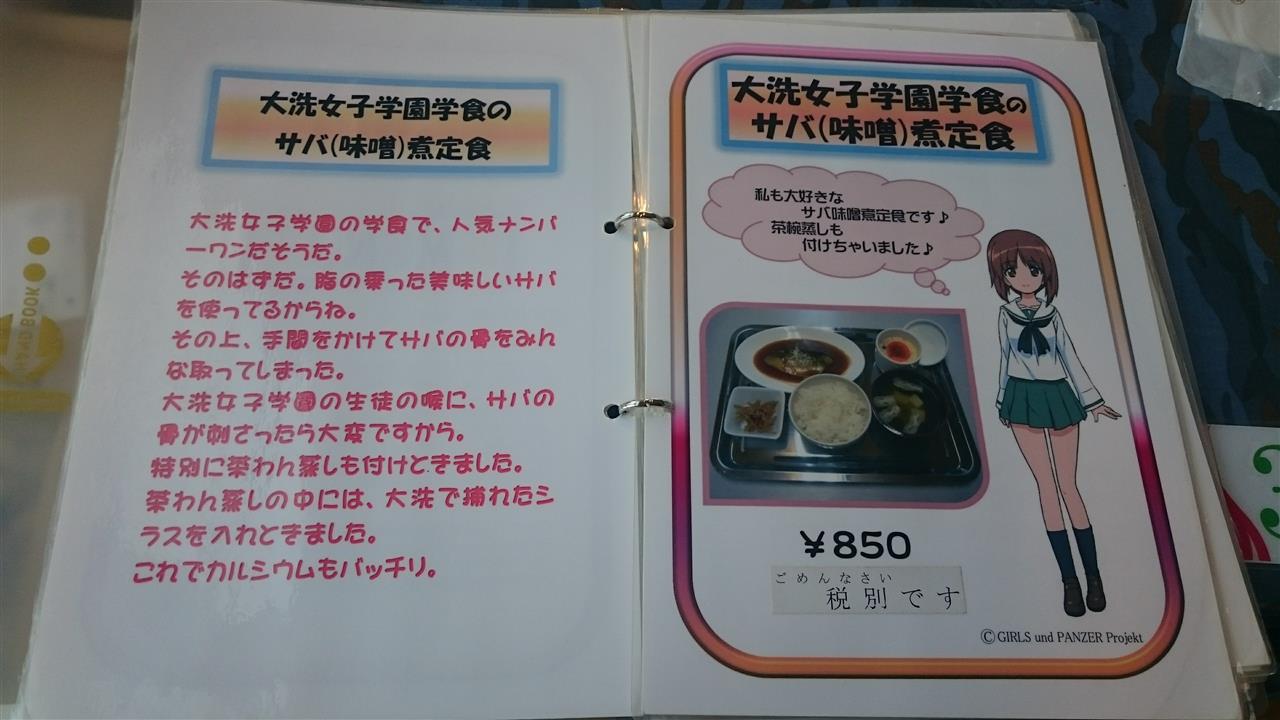 大洗女子学園学食の
サバ(味噌)煮定食
大洗女子学園の学食で、人気ナンバ
ーワンだそうだ。
そのはずだ。脂の乗った美味しいサバ
を使ってるからね。
その上、手間をかけてサバの骨をみん
な取ってしまった。
大洗女子学園の生徒の喉に、サバの
骨が刺さったら大変ですから。
特別に茶わん蒸しも付けときました。
茶わん蒸しの中には、大洗で捕れたシ
ラスを入れときました。
これでカルシウムもバッチリ。
大洗女子学園学食の
サバ(味噌)煮定食
私も大好きな
サバ味噌煮定食です♪
茶碗蒸しも
付けちゃいました♪
￥850
ごめんなさい
税別です
©GIRLS und PANZER Projekt